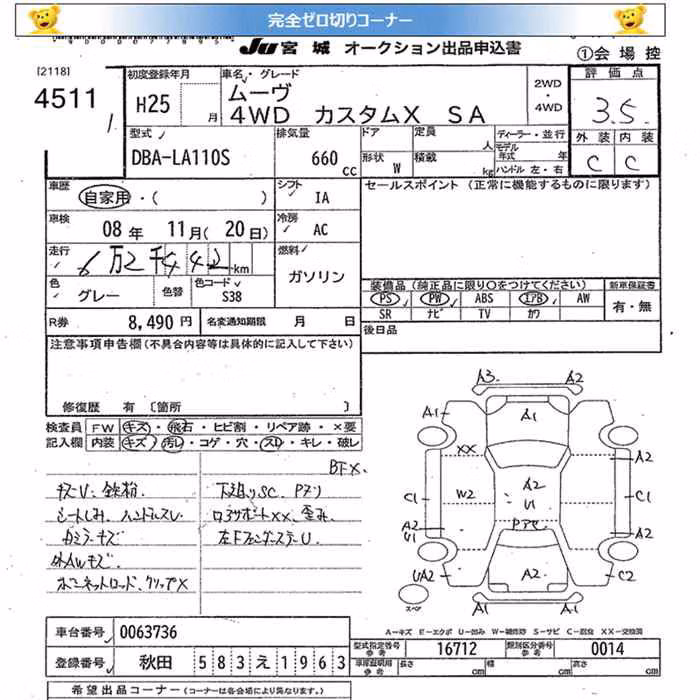 完全ゼロ切りコーナー
JU宮城 オークション出品申込書
①会場控
[2118]
4511
初度登録年月
H25 月
車名・グレード
ムーヴ
4WD カスタムX SA
2WD・4WD
評価点
3.5
外装 内装
C C
型式
DBA-LA110S
排気量
660cc
ドア
定員 人
ディーラー・並行
モデル年式 年
形状 W
積載 kg
ハンドル 左・右
車歴
自家用・( )
シフト
IA
セールスポイント (正常に機能するものに限ります)
車検
08年 11月(20日)
冷房
AC
走行
6万2千442km
燃料
ガソリン
色
グレー
色替
色コード
S38
装備品(純正品に限り○をつけてください)
新車保証書
PS PW ABS エアB AW
有・無
SR ナビ TV カワ
R券 8,490円
名変通知期限 月 日
後日品
注意事項申告欄(不具合内容等は具体的に記入して下さい)
修復歴 有 〔箇所 〕
検査員 FW キズ・飛石・ヒビ割・リペア跡・×要
記入欄 内装 キズ・汚レ・コゲ・穴・スレ・キレ・破レ
BFX.
キズU、鉄粉.
下廻りSC、Pアリ
シートしみ、ハンドルスレ
ロアサポートXX、歪み、
カミラーキズ
左FフェンダーステーU
外AWキズ
ボンネットロッド、クリップX
A3 A2
A1 A1
XX A2
W2 A2
C1 U1 C1
A2 A2
U1 Pアセ
UA2 A2 C2
スペア A1 A1
A-キズ E-エクボ U-凹み W-補修跡 S-サビ C-腐食 XX-交換済
車台番号 0063736
型式指定番号 参考 16712
類別区分番号 参考 0014
登録番号 秋田 583 え 1963
車庫証明用 参考 長さ cm 幅 cm 高さ cm
希望出品コーナー(コーナーは各会場により異なります。)